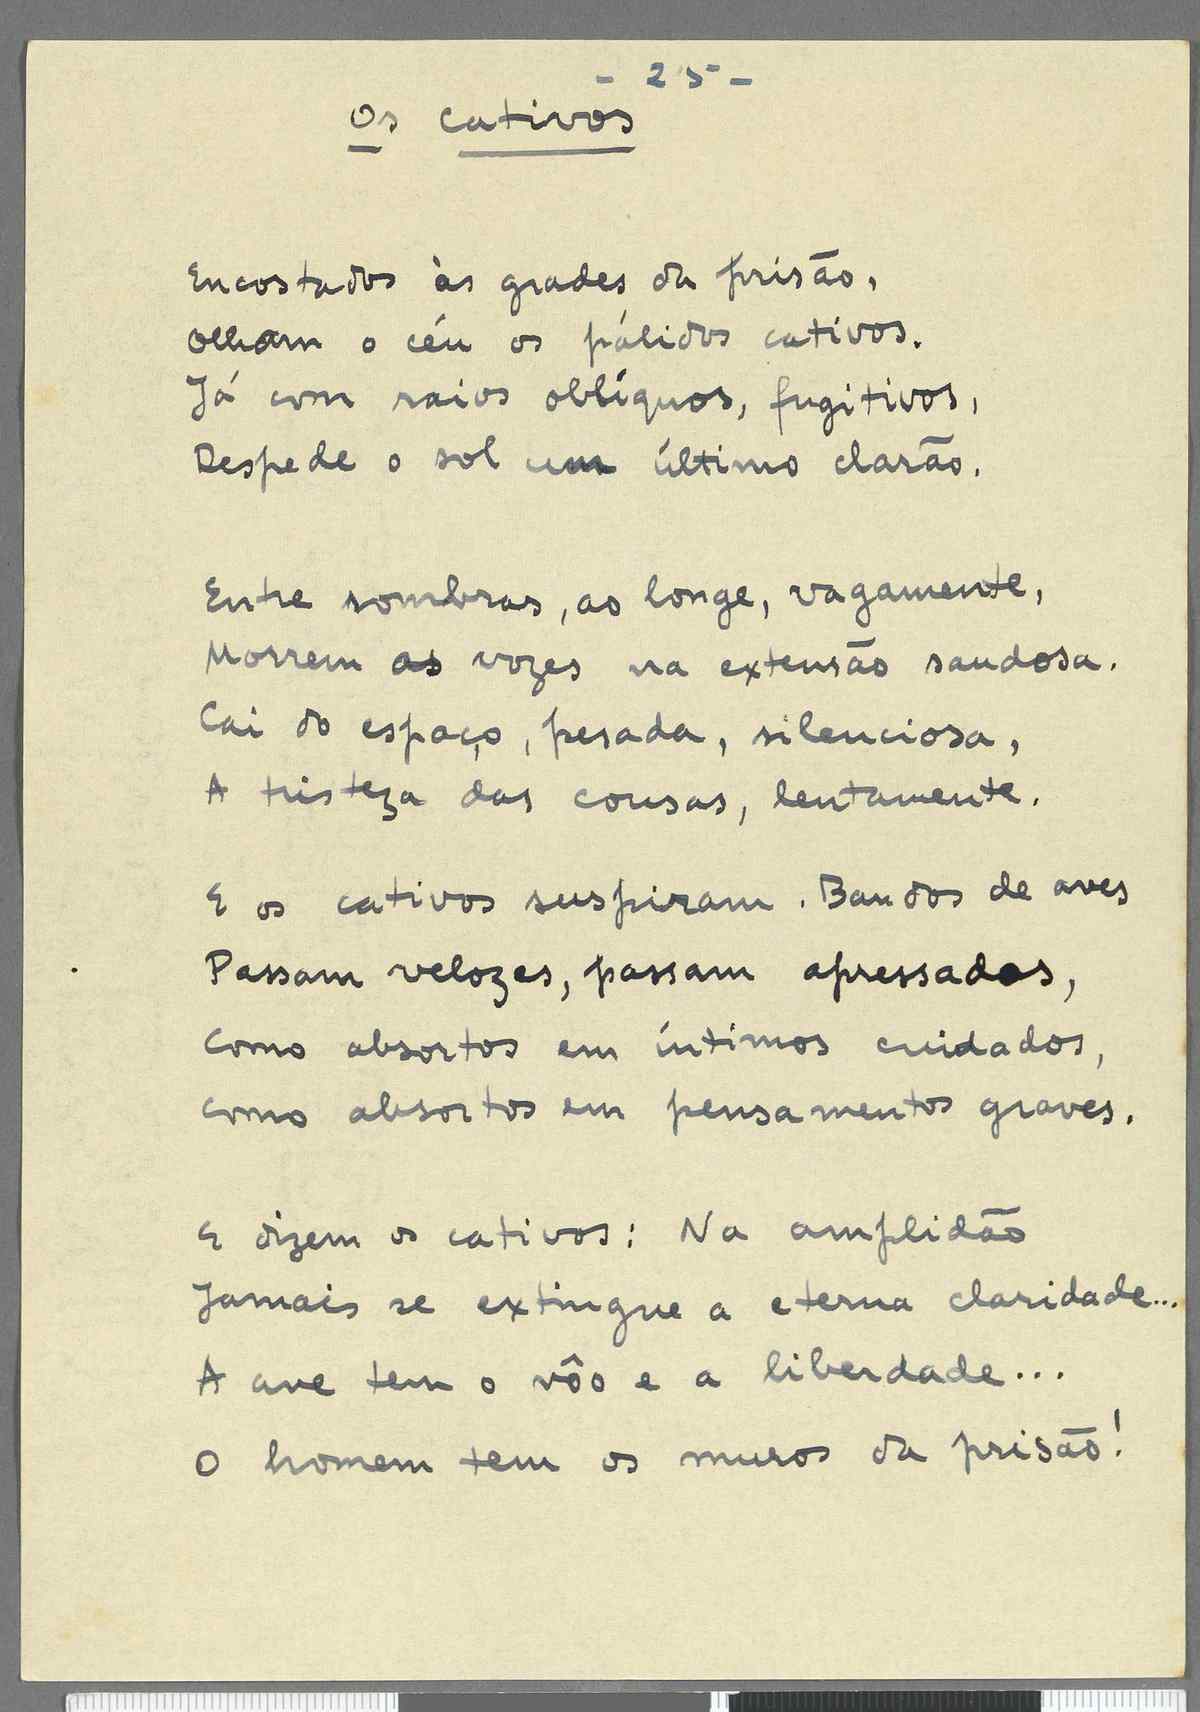 - 25 -
Os cativos
Encostados às grades da prisão,
Olham o céu os pálidos cativos.
Já com raios oblíquos, fugitivos,
Despede o sol um último clarão.
Entre sombras, ao longe, vagamente,
Morrem as vozes na extensão saudosa.
Cai do espaço, pesada, silenciosa,
A tristeza das cousas, lentamente.
E os cativos suspiram. Bandos de aves
Passam velozes, passam apressados,
Como absortos em íntimos cuidados,
Como absortos em pensamentos graves.
E dizem os cativos: Na amplidão
Jamais se extingue a eterna claridade...
A ave tem o vôo e a liberdade...
O homem tem os muros da prisão!